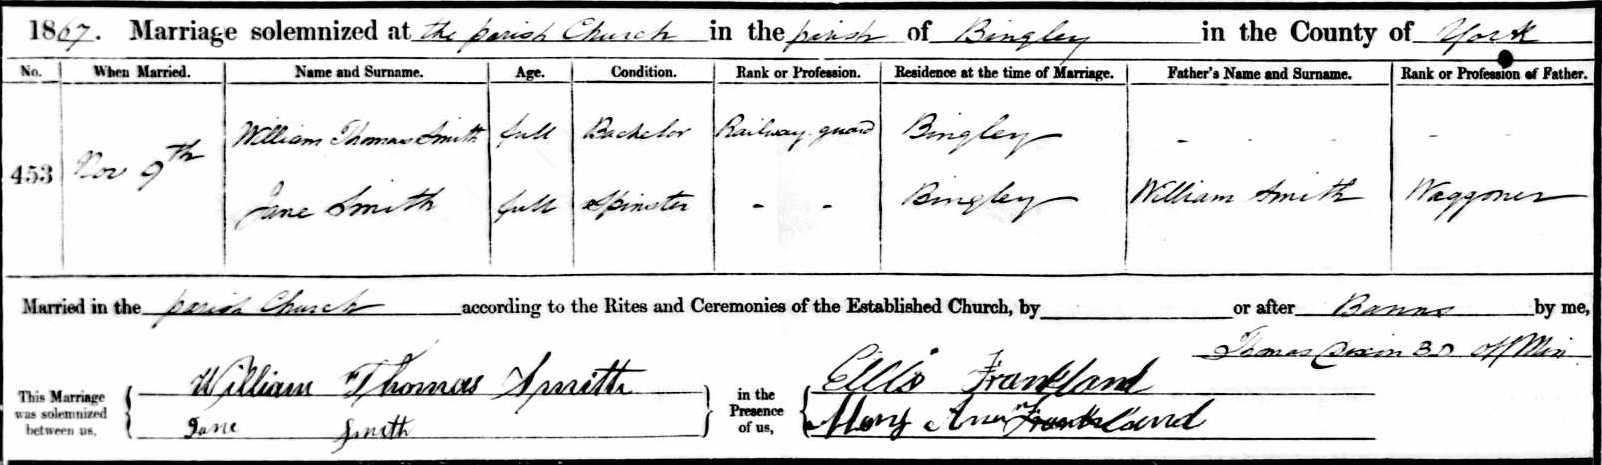 1867. Marriage solemnized at the parish Church in the parish of Bingley in the County of York
No. When Married. Name and Surname. Age. Condition. Rank or Profession. Residence at the time of Marriage. Father's Name and Surname. Rank or Profession of Father.
William Thomas Smith full Bachelor Railway guard Bingley - - - -
453 Nov 9th
Jane Smith full Spinster - - Bingley William Smith Waggoner
Married in the parish Church according to the Rites and Ceremonies of the Established Church, by or after Banns by me,
Thomas Dixon B.D Off Min
This Marriage was solemnized between us, William Thomas Smith in the Presence of us, Ellis Frankland
Jane Smith Mary Ann Frankland